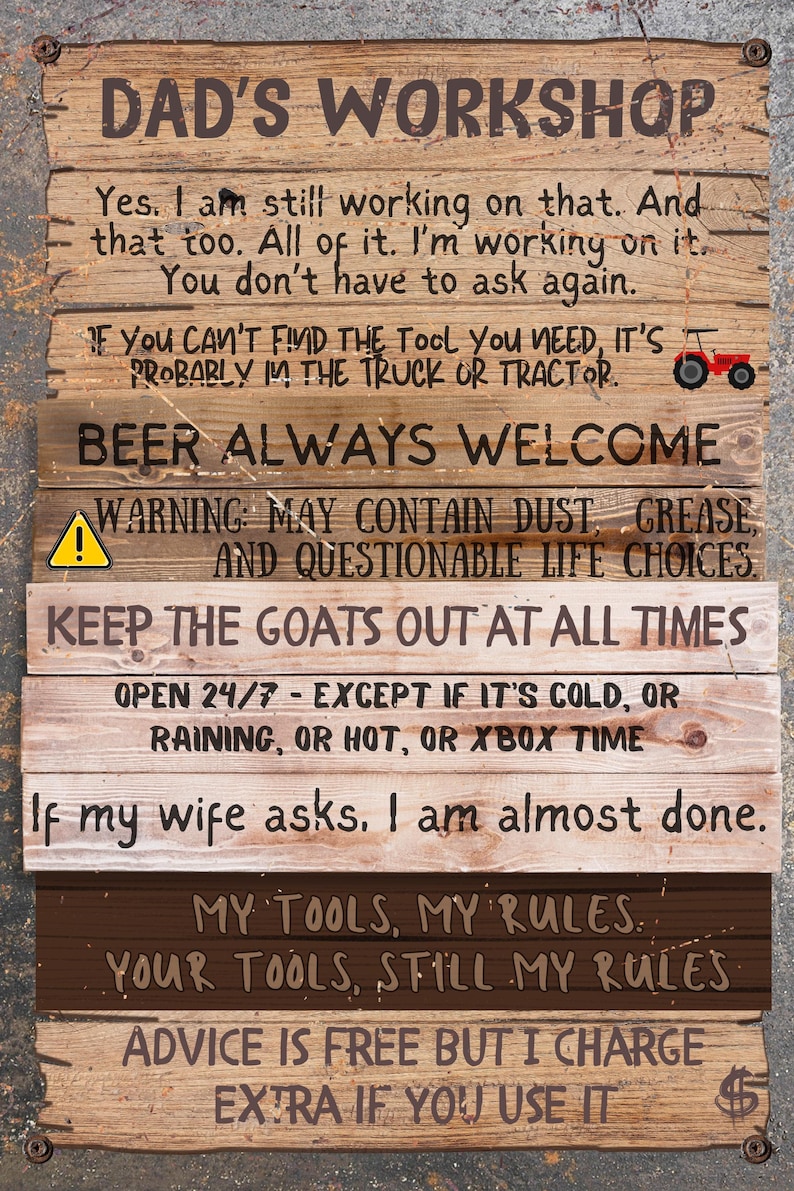 DAD'S WORKSHOP
Yes. I am still working on that. And
that too. All of it. I'm working on it.
You don't have to ask again.
IF YOU CAN'T FIND THE TOOL YOU NEED, IT'S
PROBABLY IN THE TRUCK OR TRACTOR.
BEER ALWAYS WELCOME
WARNING: MAY CONTAIN DUST, GREASE,
AND QUESTIONABLE LIFE CHOICES.
KEEP THE GOATS OUT AT ALL TIMES
OPEN 24/7 - EXCEPT IF IT'S COLD, OR
RAINING, OR HOT, OR XBOX TIME
If my wife asks. I am almost done.
MY TOOLS, MY RULES.
YOUR TOOLS, STILL MY RULES
ADVICE IS FREE BUT I CHARGE
EXTRA IF YOU USE IT
$